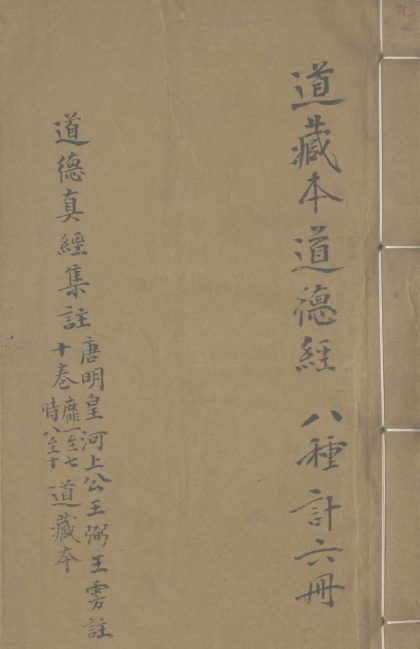 道藏本道德經 八種計六冊
道德真經集註 唐明皇河上公王弼王雱註
十卷 靡一至七 道藏本
恃八至十